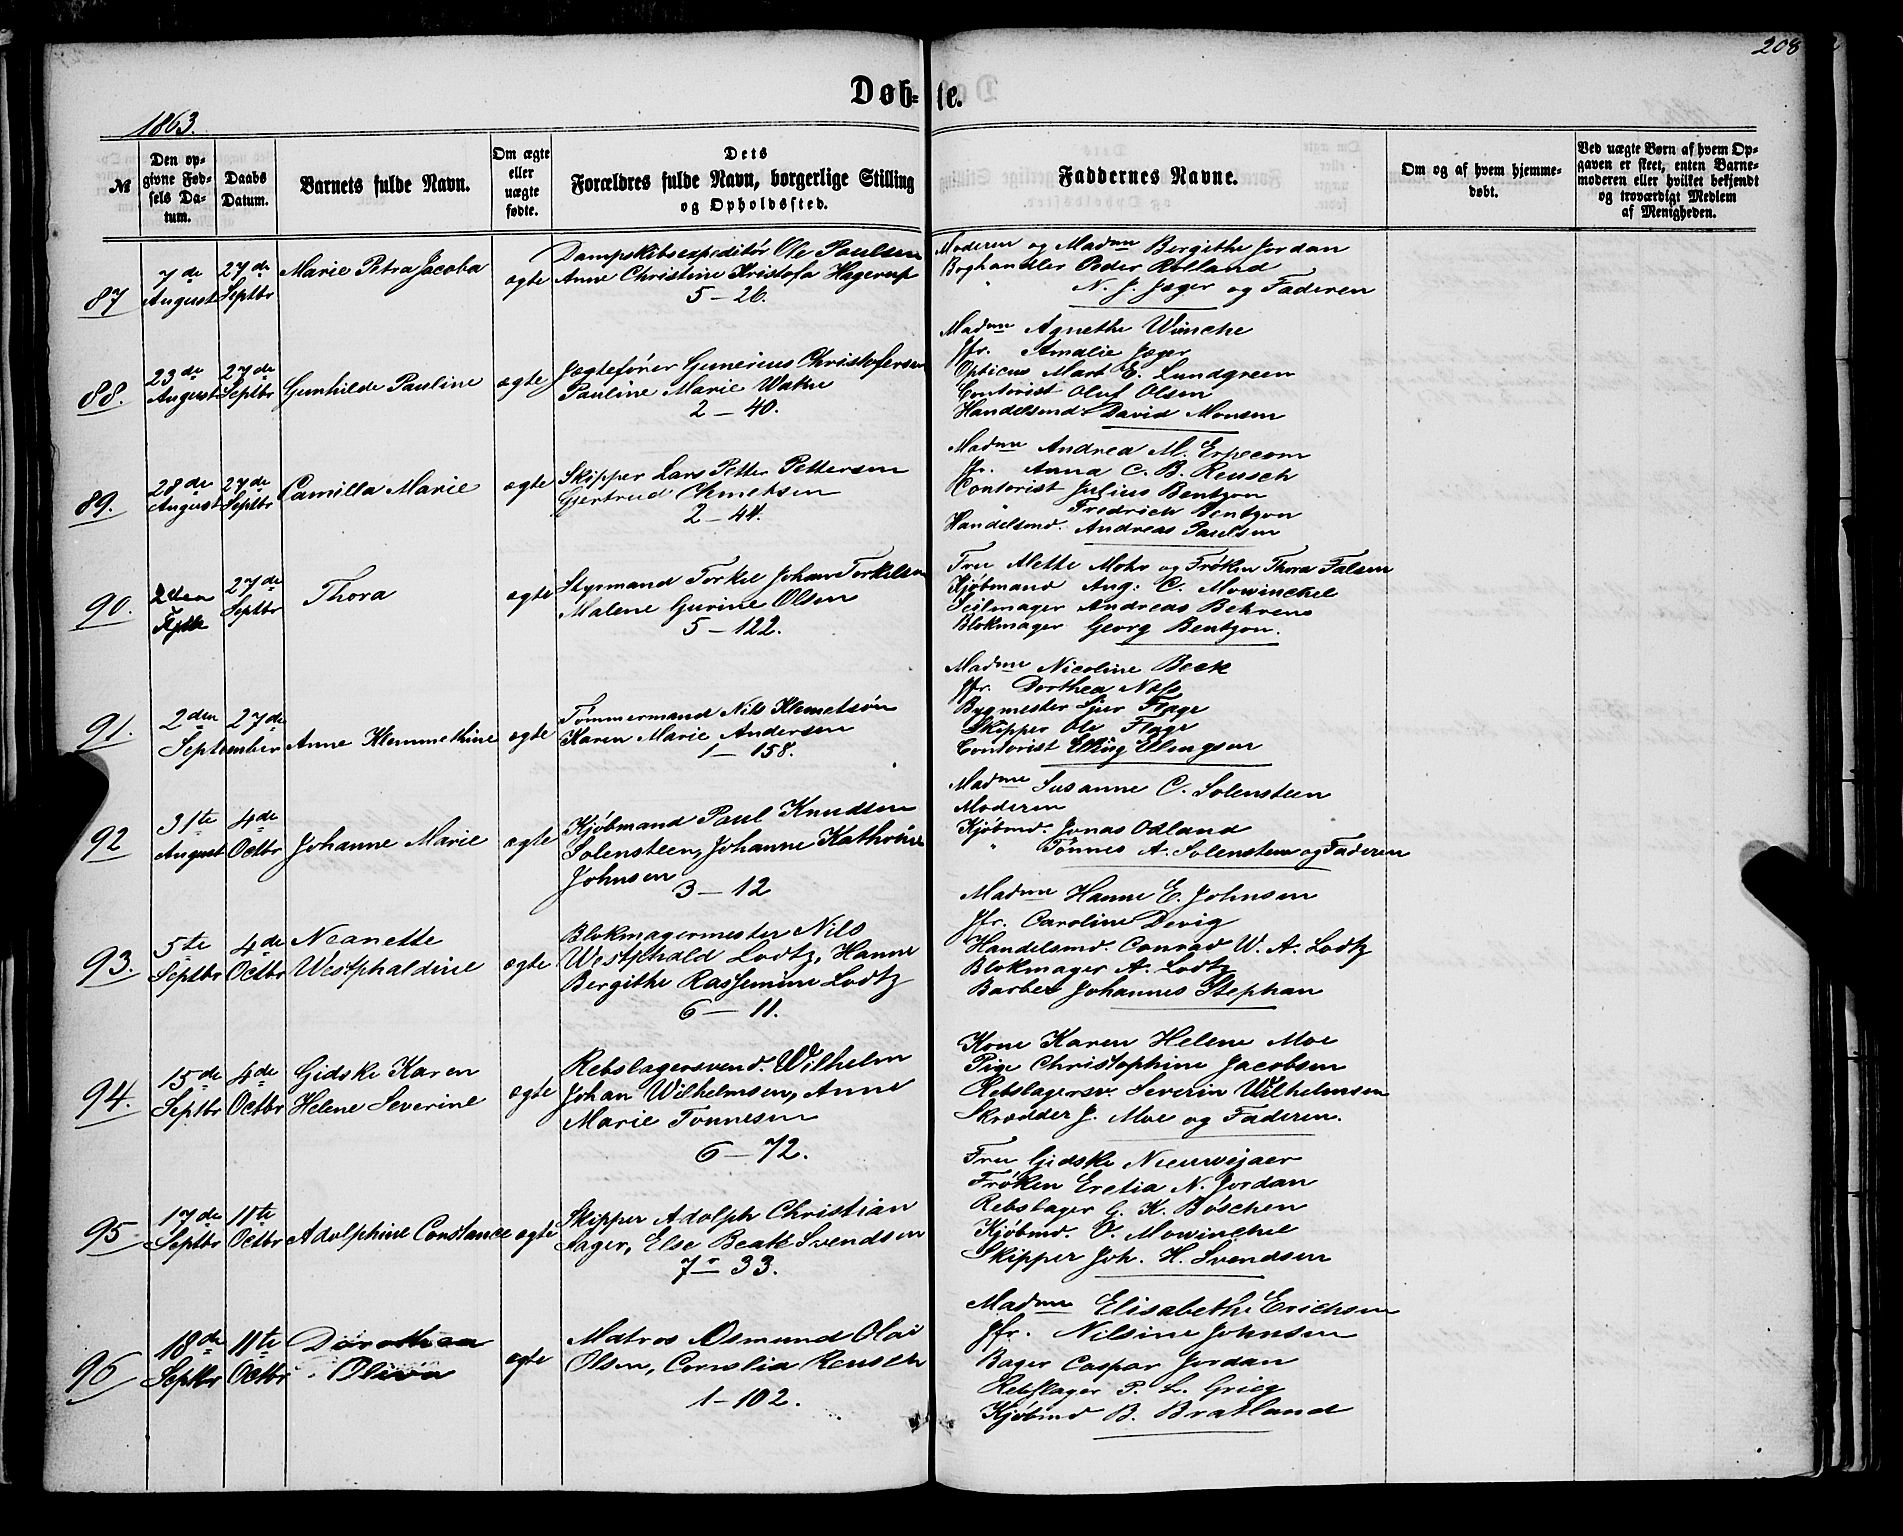 208
Døb-te.
1863.
№
Den opgivne Fødsels Datum.
Daabs Datum.
Barnets fulde Navn.
Om ægte eller uægte fødte.
Dets Forældres fulde Navn, borgerlige Stilling og Opholdssted.
Faddernes Navne.
Om og af hvem hjemmedøbt.
Ved uægte Børn af hvem Opgaven er skeet, enten Barnemoderen eller hvilket bekjendt og troværdigt Medlem af Menigheden.
87
7de August
27de Septbr
Marie Petra Jacoba
ægte
Dampskibsexpeditør Ole Paulsen
Anne Christine Kristofa Hagerup
5 - 26.
Moderen og Madme Bergithe Jordan
Boghandler Peder Rolland
" N. J. Jæger og Faderen
88.
23de August
27de Septbr
Gunhilde Pauline
ægte
Jægtefører Gunerius Christofersen
Pauline Marie Wakn
2 - 40.
Madme Agnethe Wincke
Jfr. Amalie Jæger
Opticus Mart. E. Lundgreen
Contorist Oluf Olsen
Handelsmd David Monsen
89.
28de August
27de Septbr
Camilla Marie
ægte
Skipper Lars Petter Pettersen
Gjertrud Clmetsen
2 - 44.
Madme Andrea M. Erpecom
Jfr. Anna C. B. Reusch
Contorist Julius Bentzon
" Fredrich Bentzon
Handelsmd. Andreas Paulsen
90.
2den Septb
27de Septbr
Thora
ægte
Stygmand Torkel Johan Torkilsen
Malene Gurine Olsen
5 - 122.
Fru Alette Mohr og Frøken Thora Falsen
Kjøbmand Aug: C. Mowinckel
Seilmager Andreas Behrens
Blokmager Georg Bentzon.
91.
2den 27de
September
Anne Klemmethine
ægte
Tømmermand Nils Klemetsøn
Karen Marie Andersen
1 - 158.
Madme Nicoline Beck
Jfr. Dorthea Næss
Bygmester Sjur Frage
Skipper Ole Flage
Contorist Elling Ellingsen
92
31te August
4de Octbr
Johanne Marie
ægte
Kjøbmand Paul Knudsen
Solensteen, Johanne Kathrine
Johnsen
3 - 12
Madme Susanne C. Solensteen
Moderen
Kjøbmd. Jonas Odland
" Tønnes A. Solensteen og Faderen
93.
5te Septbr
4de Octbr
Neanette
Westphaldine
ægte
Blokmagermester Nils
Westphald Lodtz, Hanne
Bergithe Rassemine Lodtz
6 - 11.
Madme Hanne E. Johnsen
Jfr. Caroline Devig
Handelsmd. Conrad W. A. Lodtz
Blokmager A. Lodtz
Barber Johannes Stephan
94.
15de Septbr
4de Octbr
Gidske Karen
Helene Severine
ægte
Rebslagersvend. Wilhelm
Johan Wilhelmsen, Anne
Marie Tonnesen
6 - 72.
Kone Karen Helene Moe
Pige Christophine Jacobsen
Rebslagersv. Severin Wilhelmsen
Skrædder J. Moe og Faderen.
95.
17de Septbr
11te Octbr
Adolphine Constance
ægte
Skipper Adolph Christian
Sager, Else Beate Svendsen
7 - 33.
Fru Gidske Nieuwejaer
Frøken Eretia N. Jordan
Rebslager G. K. Bøschen
Kjøbmd. V. Mowinckel
Skipper Joh. H. Svendsen
96
18de Septbr
11te Octbr
Dorothea
Oliva
ægte
Matros Osmund Olai
Olsen, Cornelia Reusch
1 - 102.
Madme Elisabethe Erichsen
Jfr. Nilsine Johnsen
Bager Caspar Jordan
Rebslager P. L. Grieg
Kjøbmd B. Bratland